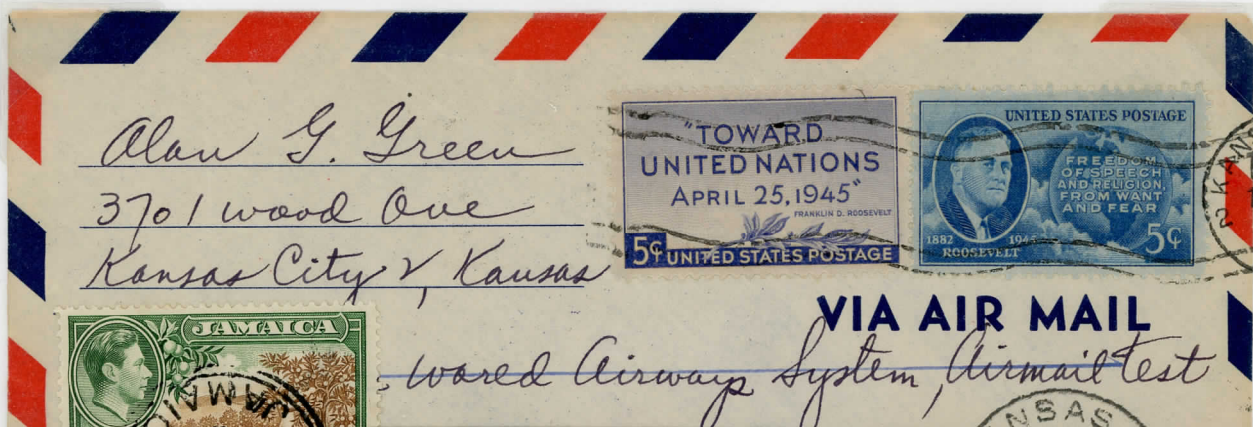 Alan G. Green
3701 wood Ave
Kansas City 2, Kansas
"TOWARD
UNITED NATIONS
APRIL 25, 1945"
FRANKLIN D. ROOSEVELT
5¢ UNITED STATES POSTAGE
UNITED STATES POSTAGE
FREEDOM
OF SPEECH
AND RELIGION,
FROM WANT
AND FEAR
1882 1945
ROOSEVELT
5¢
KAN
2
VIA AIR MAIL
JAMAICA
JAMAIC
wared Airways System, Airmail Test
NSAS